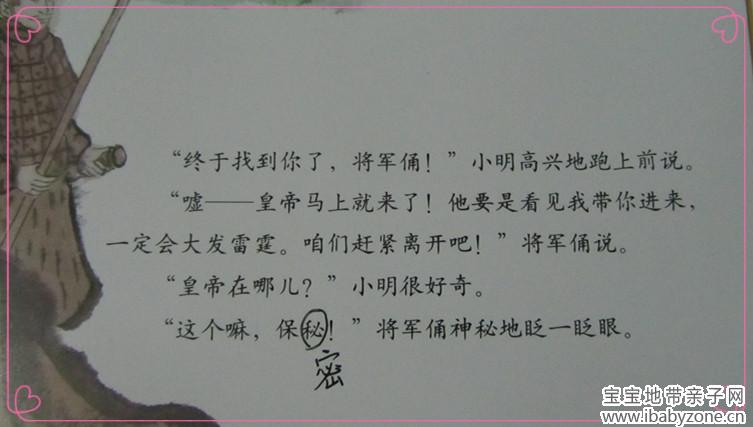 “终于找到你了，将军俑！”小明高兴地跑上前说。
“嘘——皇帝马上就来了！他要是看见我带你进来，
一定会大发雷霆。咱们赶紧离开吧！”将军俑说。
“皇帝在哪儿？”小明很好奇。
“这个嘛，保秘！”将军俑神秘地眨一眨眼。
密
宝宝地带亲子网
www.ibabyzone.cn